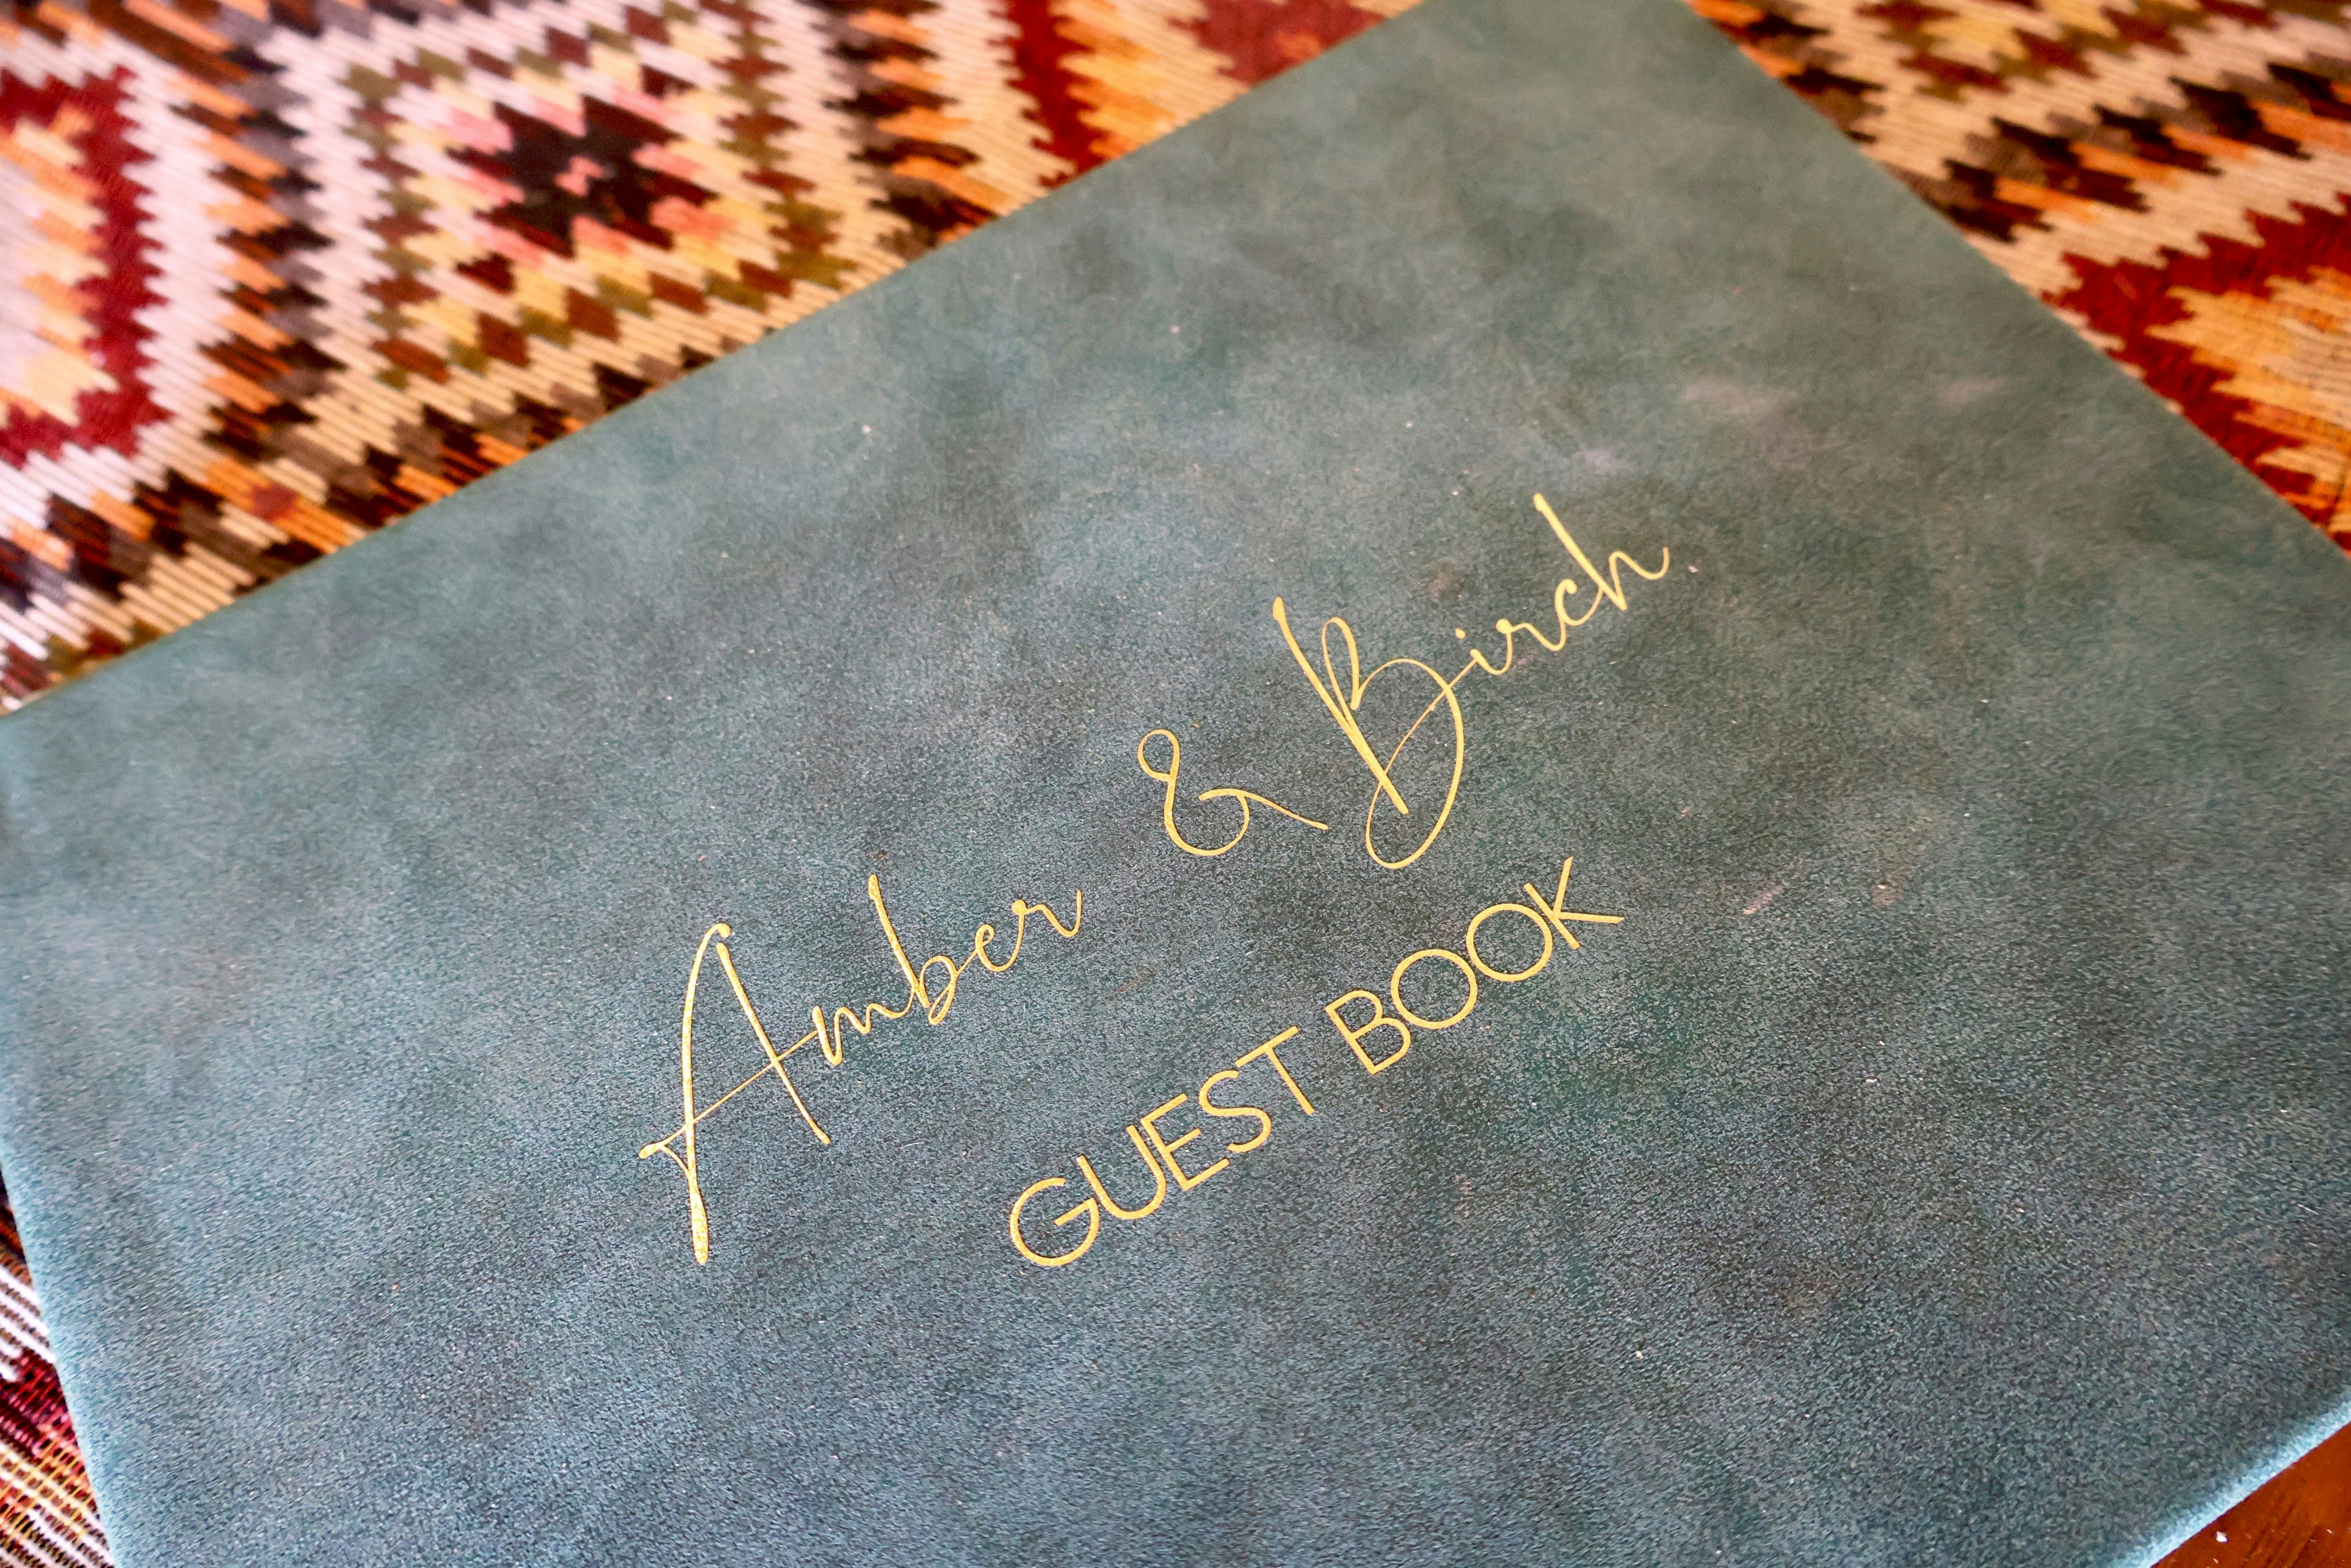 Amber & Birch
GUEST BOOK